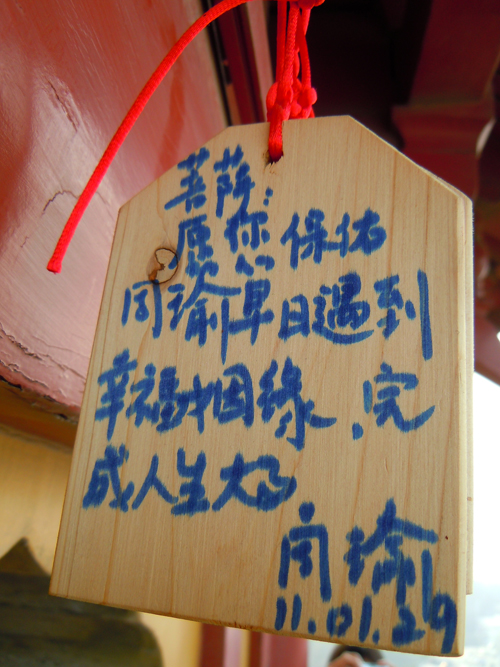 菩薩:
愿您保佑
瑜早日遇到
幸福姻緣,完
成人生大事
瑜
11.01.29